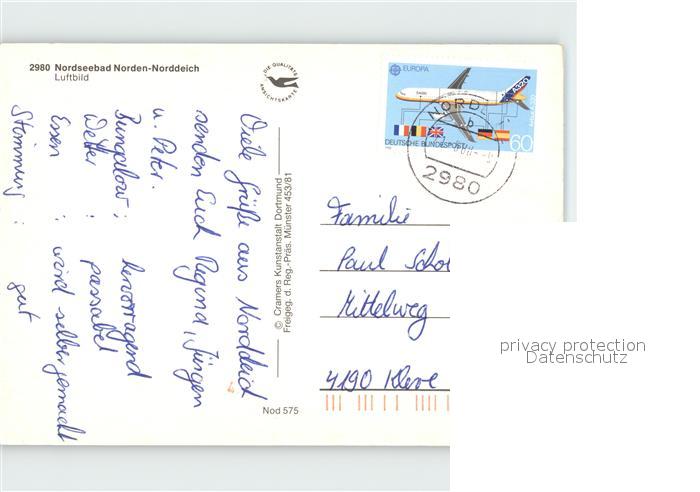 2980 Nordseebad Norden-Norddeich
Luftbild
DIE QUALITÄTS
ANSICHTSKARTE
EUROPA
A320
60
DEUTSCHE BUNDESPOST
NORD
b
2980
Viele Grüße aus Norddeich
senden Euch Jürgen
u. Peter.
Bungalow: hervorragend
Wetter: passabel
Essen: wird selber gemacht
Stimmung: gut
© Cramers Kunstanstalt Dortmund
Freigeg. d. Reg.-Präs. Münster 453/81
Nod 575
Familie
Paul
Mittelweg
4190 Kleve
privacy protection
Datenschutz